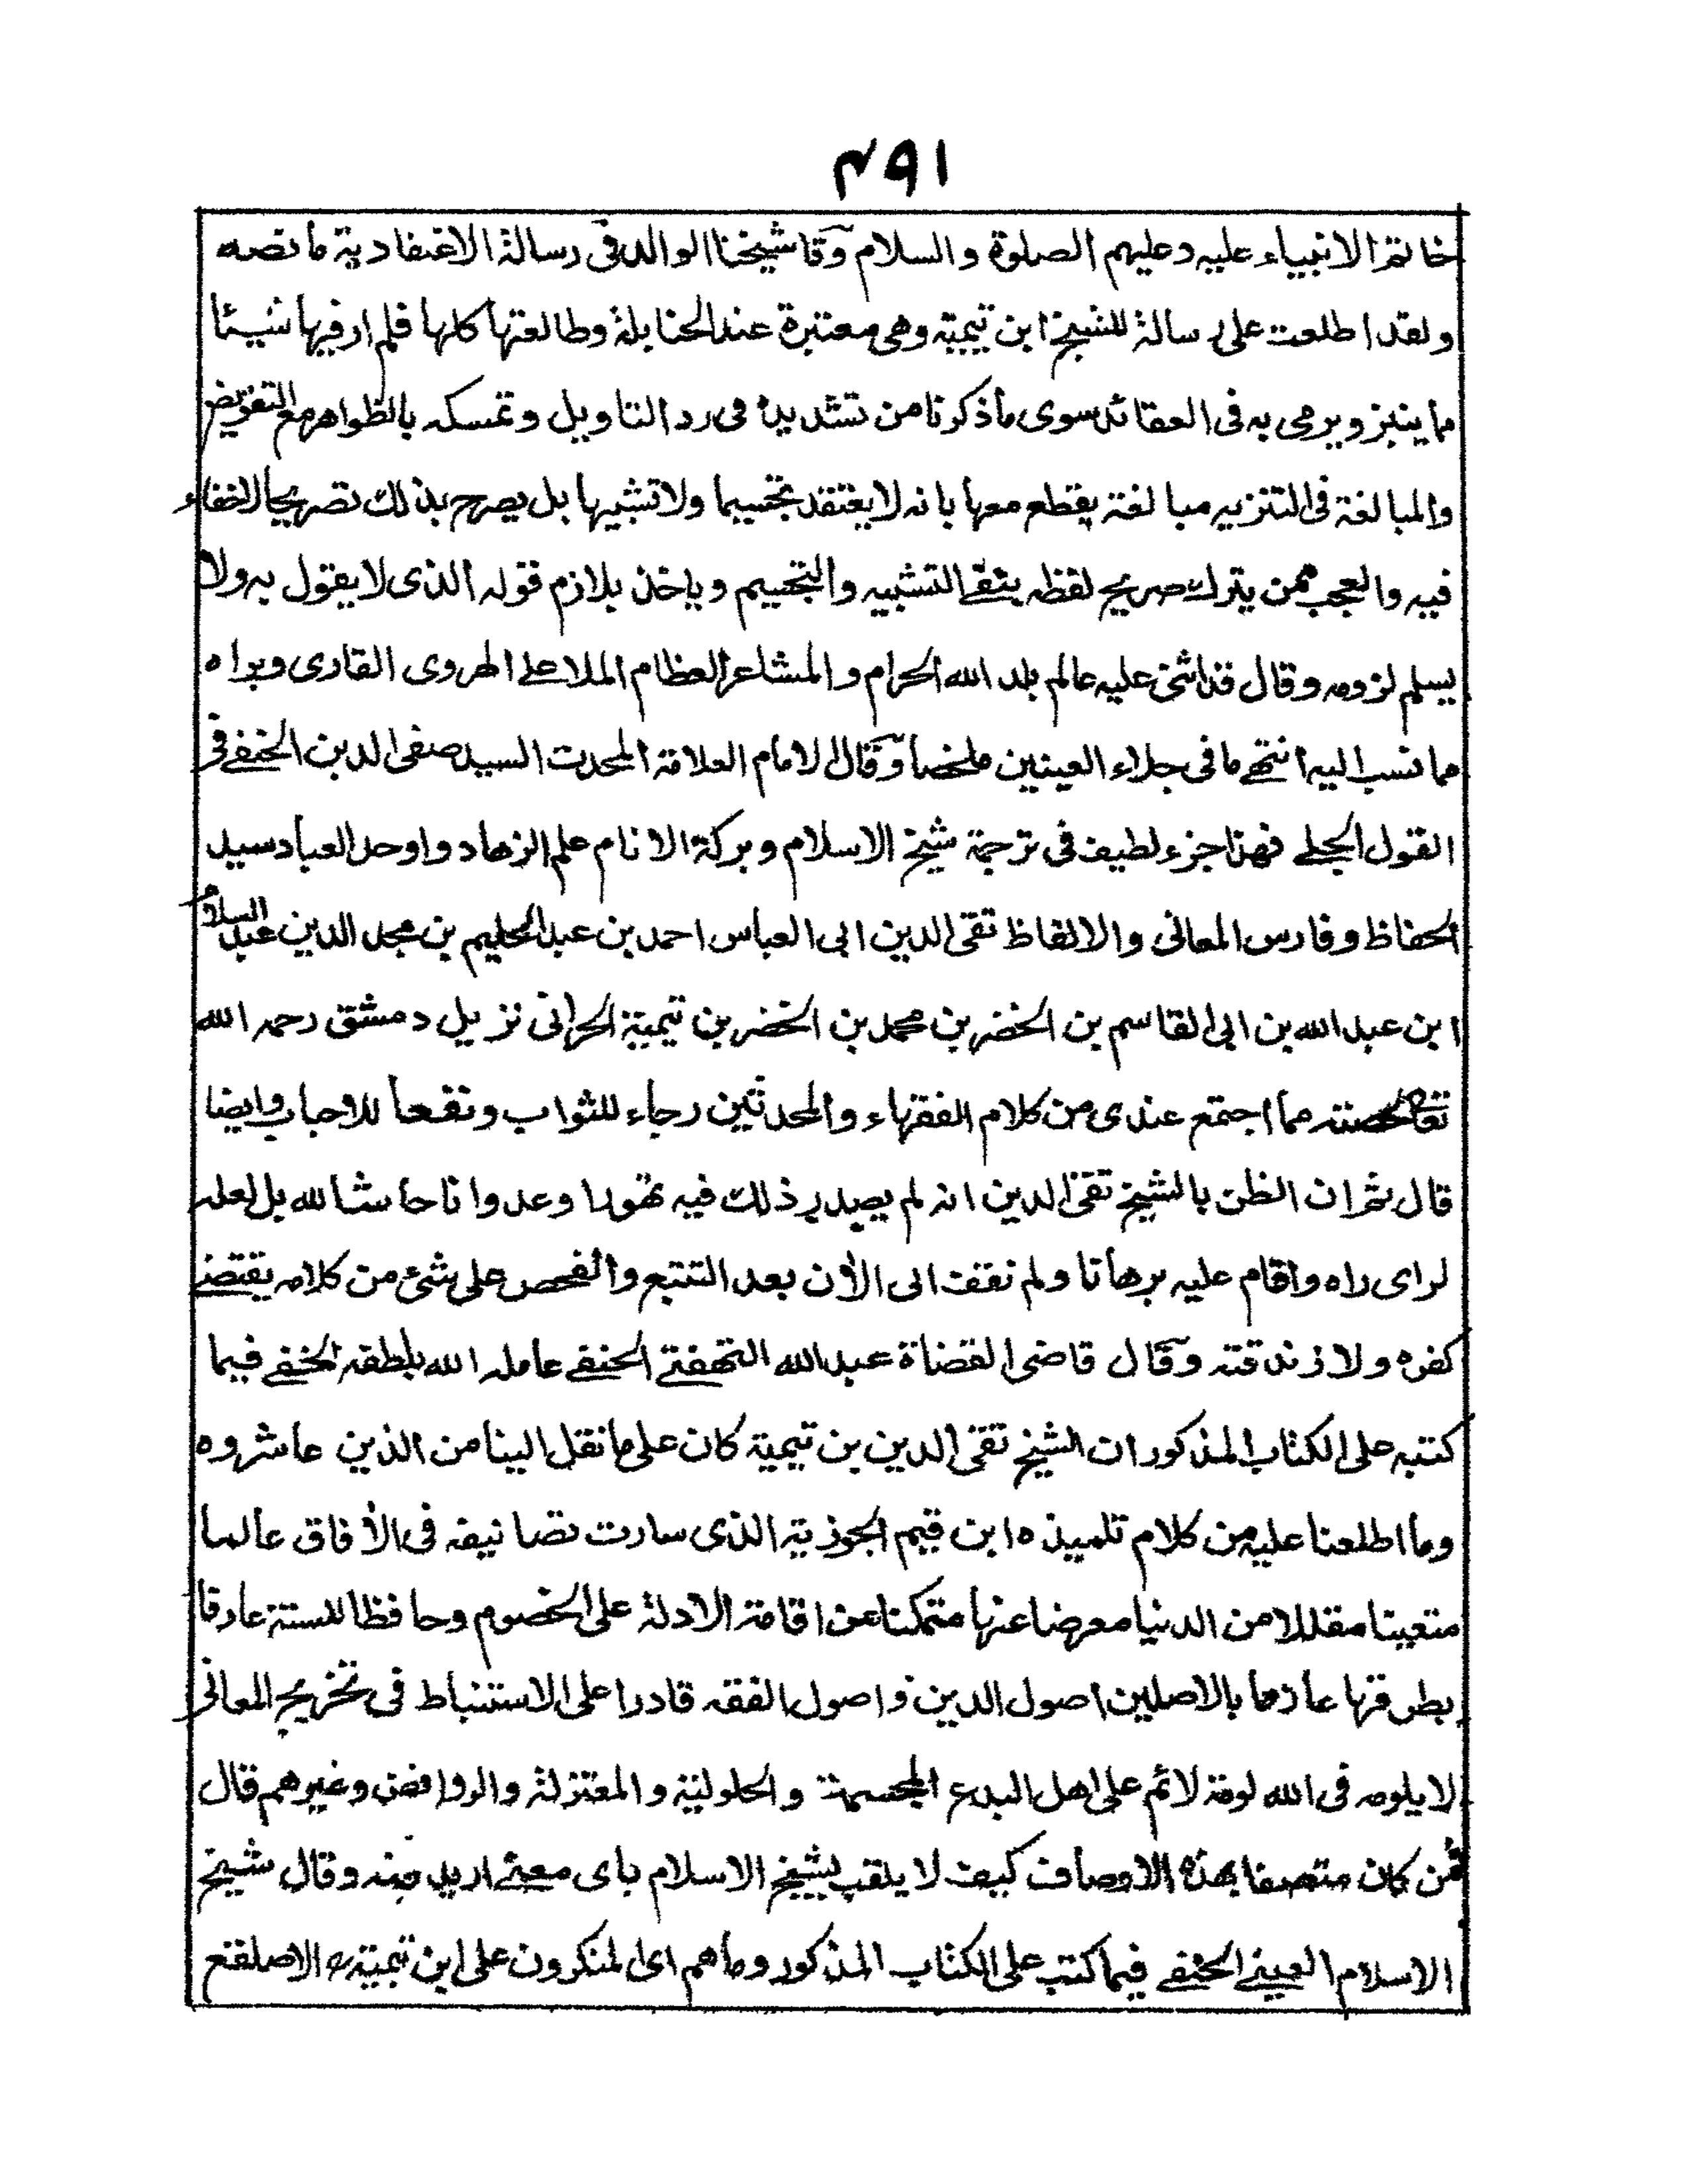 ٤٩١
خاتم الانبياء عليه وعليهم الصلوة والسلام وقا شيخنا الوالد فى رسالة الاعتقادية ما نصه
ولقد اطلعت على رسالة للشيخ ابن تيمية وهى معتبرة عند الحنابلة وطالعتها كلها فلم ار فيها شيئا
مما ينبز ويرمى به فى العقائد سوى ما ذكرنا من تشديدا فى رد التاويل وتمسكه بالظواهر مع التفويض
والمبالغة فى التنزيه مبالغة يقطع معها بانه لا يعتقد تجسيما ولا تشبيها بل يصرح بذلك تصريحا لاخفاء
فيه والعجب ممن يترك صريح لفظه بنفى التشبيه والتجسيم وياخذ بلازم قوله الذى لا يقول به ولا
يسلم لزومه وقال قد اثنى عليه عالم بلد الله الحرام والمشاعر العظام الملا على الهروى القارى وبراه
مما نسب اليه انتهى ما فى جلاء العينين ملخصا وقال الامام العلامة المحدث السيد صفى الدين الحنفى فى
القول الجلى فهذا جزء لطيف فى ترجمة شيخ الاسلام وبركة الانام علم الزهاد واوحد العباد سيد
الحفاظ وفارس المعانى والالفاظ تقى الدين ابى العباس احمد بن عبد الحليم بن مجد الدين عبد السلام
ابن عبد الله بن ابى القاسم بن الخضر بن محمد بن الخضر بن تيمية الحرانى نزيل دمشق رحمه الله
تعالى لخصته مما اجتمع عندى من كلام الفقهاء والمحدثين رجاء للثواب ونفعا للاحباب وايضا
قال ثم ان الظن بالشيخ تقى الدين انه لم يصدر ذلك فيه تهورا وعدوانا حاشا لله بل لعله
لراى راه واقام عليه برهانا ولم نقف الى الأن بعد التتبع والفحص على شئ من كلامه يقتضى
كفره ولا زندقته وقال قاضى القضاة عبد الله التفهنى الحنفى عامله الله بلطفه الخفى فيما
كتبه على الكتاب المذكور ان الشيخ تقى الدين بن تيمية كان على ما نقل الينا من الذين عاشروه
وما اطلعنا عليه من كلام تلميذه ابن قيم الجوزية الذى سارت تصانيفه فى الأفاق عالما
متعينا مقللا من الدنيا معرضا عنها متمكنا عن اقامة الادلة على الخصوم وحافظا للسنة عارفا
بطرقها عارفا بالاصلين اصول الدين واصول الفقه قادرا على الاستنباط فى تخريج المعانى
لا يلومه فى الله لومة لائم على اهل البدع المجسمة والحلولية والمعتزلة والروافض وغيرهم قال
فمن كان متصفا بهذه الاوصاف كيف لا يلقب بشيخ الاسلام باى معنى اريد منه وقال شيخ
الاسلام العينى الحنفى فيما كتب على الكتاب المذكور وما هم اى المنكرون على ابن تيمية الا صلقع